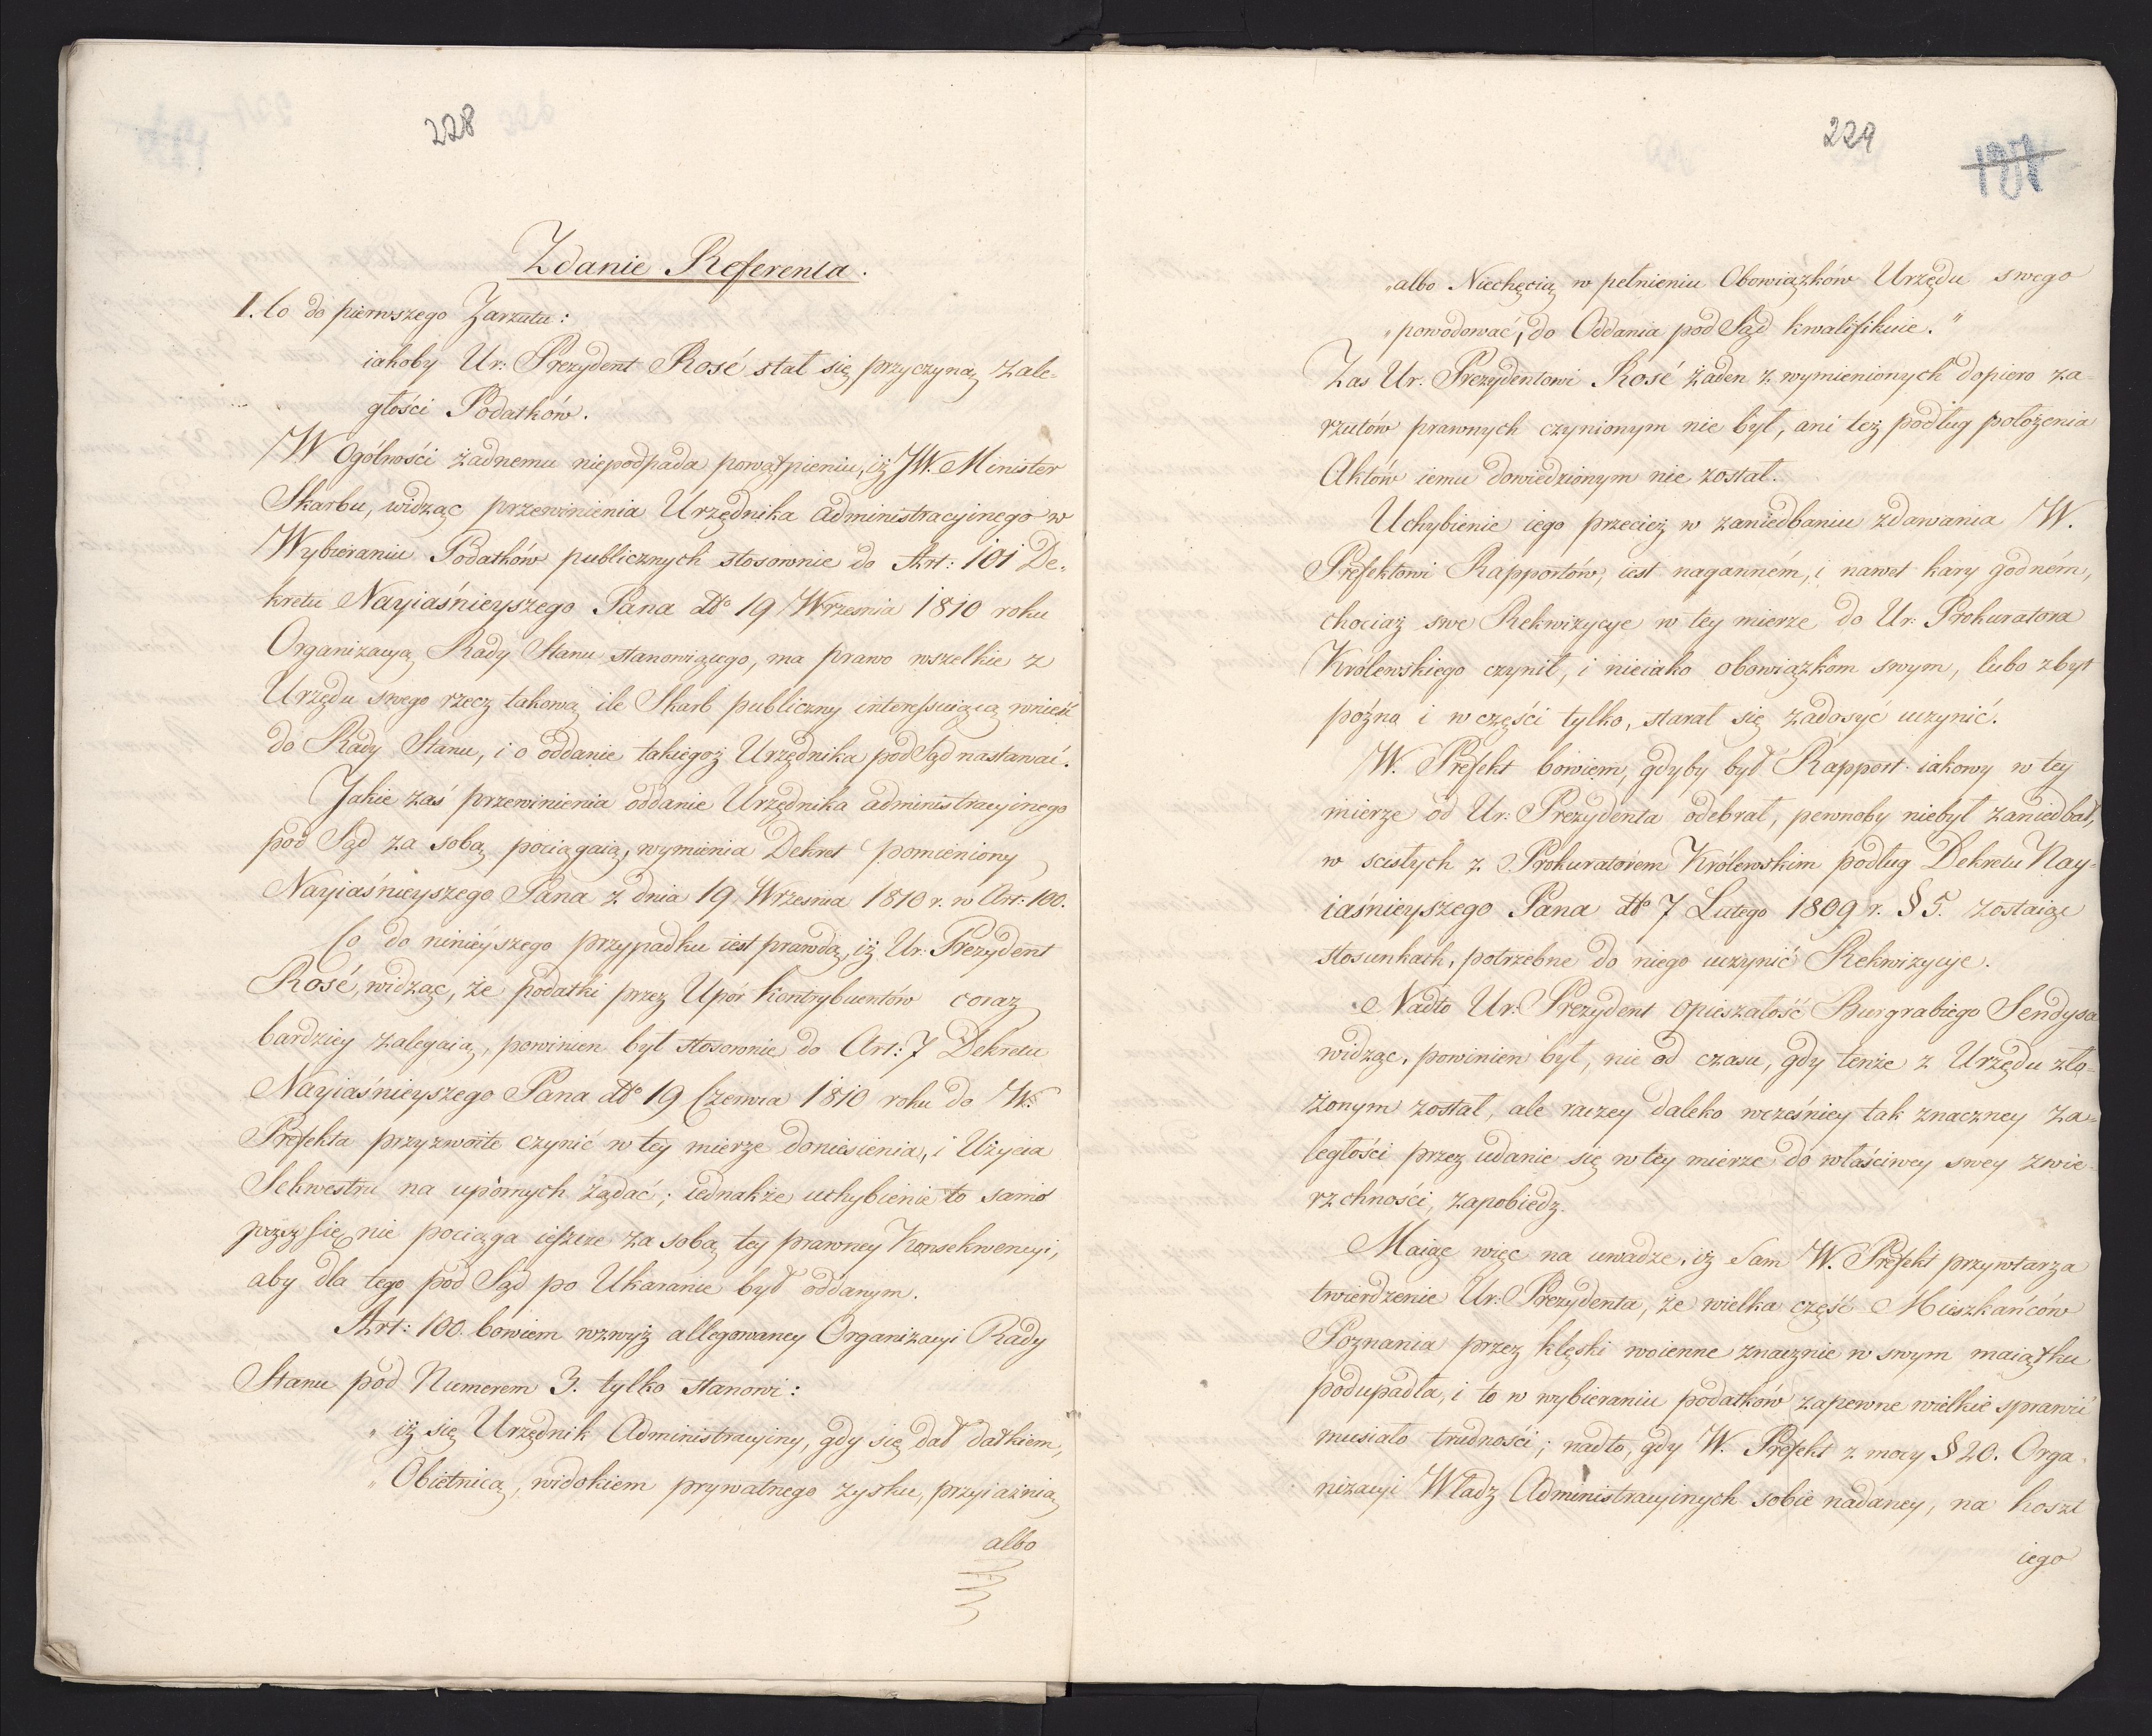 228
Zdanie Referenta.
I. Co do pierwszego Zarzutu:
iakoby Ur: Prezydent Rosé stał się przyczyną zale-
głości Podatków.
W Ogólności żadnemu niepodpada powątpieniu, iż JW. Minister
Skarbu, widząc przewinienia Urzędnika administracyinego w
Wybieraniu Podatków publicznych stosownie do Art: 101 De-
kretu Nayiaśnieyszego Pana dto 19 Wrzesnia 1810 roku
Organizacyą Rady Stanu stanowiącego, ma prawo wszelkie z
Urzędu swego rzecz takową ile Skarb publiczny interessuiącą wnieść
do Rady Stanu, i o oddanie takiegoż Urzędnika pod Sąd nastawać.
Jakie zaś przewinienia oddanie Urzędnika administracyinego
pod Sąd za sobą pociągaią, wymienia Dekret pomieniony
Nayiaśnieyszego Pana z dnia 19. Wrzesnia 1810 r. w Art: 100.
Co do ninieyszego przypadku iest prawdą, iż Ur: Prezydent
Rosé, widząc, że podatki przez Upór Kontrybuentów coraz
bardziey zalegaią, powinien był stosownie do Art: 7 Dekretu
Nayiaśnieyszego Pana dto 19 Czerwca 1810 roku do W.
Prefekta przyzwoite czynić w tey mierze doniesienia, i Użycia
Sekwestru na upornych żądać; iednakże uchybienie to samo
przez się nie pociąga ieszcze za sobą tey prawney Konsekwencyi,
aby dla tego pod Sąd po Ukaranie był oddanym.
Art: 100. bowiem wzwyż allegowaney Organizacyi Rady
Stanu pod Numerem 3. tylko stanowi:
„ iż się Urzędnik Administracyiny, gdy się dał datkiem,
„ Obietnicą, widokiem prywatnego zysku, przyiaźnią
albo
229
197
„albo Niechęcią w pełnieniu Obowiązków Urzędu swego
„powodować, do Oddania pod Sąd kwalifikuie."
Zas Ur. Prezydentowi Rosé żaden z wymienionych dopiero za-
rzutów prawnych czynionym nie był, ani też podług położenia
Aktów iemu dowiedzionym nie został.
Uchybienie iego przecież w zaniedbaniu zdawania W.
Prefektowi Rapportów, iest naganném, i nawet kary godném,
chociaż swe Rekwizycye w tey mierze do Ur: Prokuratora
Królewskiego czynił, i nieiako obowiązkom swym, lubo zbyt
poźna i w części tylko, starał się zadosyć uczynić.
W. Prefekt bowiem, gdyby był Rapport iakowy w tey
mierze od Ur: Prezydenta odebrał, pewnoby niebył zaniedbał,
w scisłych z Prokuratorem Królewskim podług Dekretu Nay-
iaśnieyszego Pana dto 7 Lutego 1809 r. § 5. zostaiąc
stosunkach, potrzebne do niego uczynić Rekwizycye.
Nadto Ur: Prezydent opieszałość Burgrabiego Sendysa
widząc, powinien był, nie od czasu, gdy tenże z Urzędu zło-
żonym został, ale raczey daleko wcześniey tak znaczney za-
ległości przez udanie się w tey mierze do właściwey swey zwie-
rzchności, zapobiedz.
Maiąc więc na uwadze, iż Sam W. Prefekt przywtarza
twierdzenie Ur: Prezydenta, że wielka część Mieszkańców
Poznania przez klęski woienne znacznie w swym maiątku
podupadła, i to w wybieraniu podatków zapewne wielkie sprawić
musiało trudności; nadto, gdy W. Prefekt z mocy § 20. Orga-
nizacyi Władz Administracyinych sobie nadaney, na koszt
iego